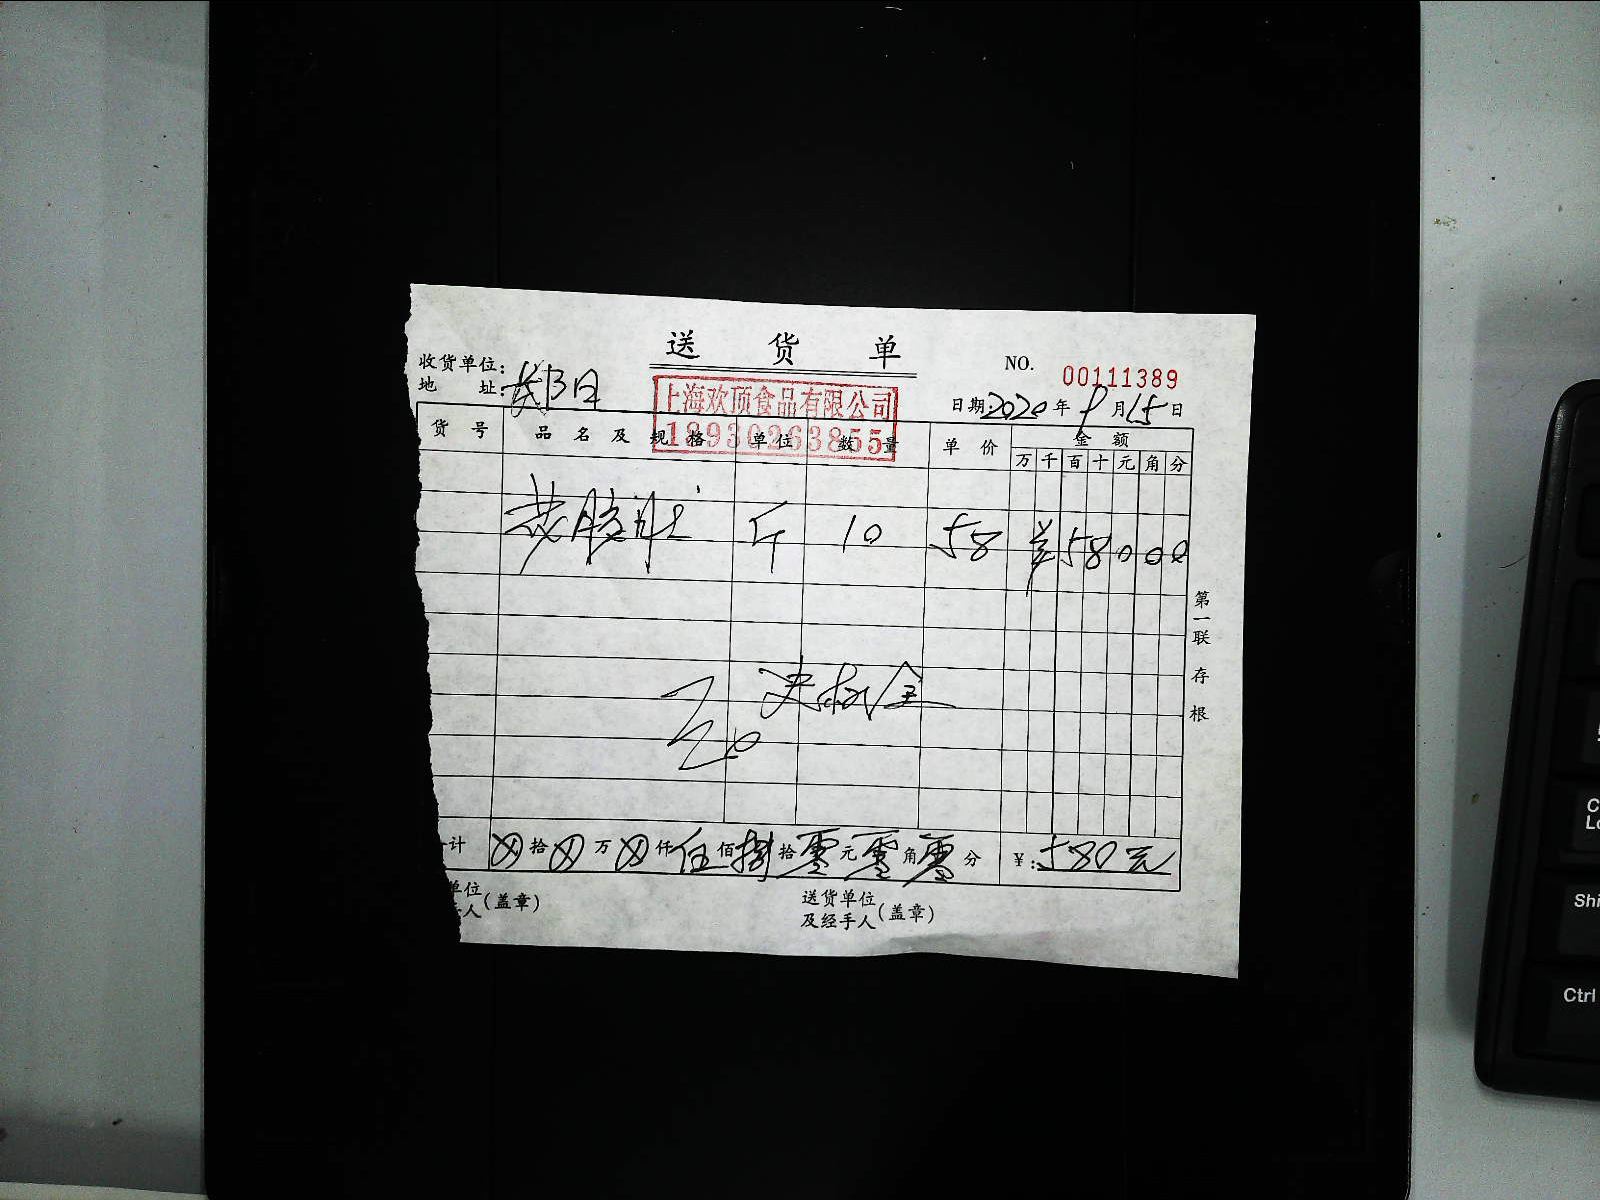 送 货 单
收货单位:
NO. 00111389
地 址:
上海欢顶食品有限公司
18930263855
日期:2020年9月15日
货号 品名及规格 单位 数量 单价 金额
万 千 百 十 元 角 分
斤 10 58 ¥58000
第一联 存根
计 ⊗拾⊗万⊗仟伍佰捌拾零元零角零分 ¥:580元
单位
人(盖章)
送货单位
及经手人(盖章)
C
Shi
Ctrl